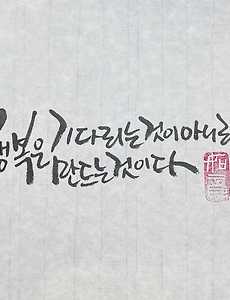 행복은 기다리는 것이 아니라
만드는 것이다